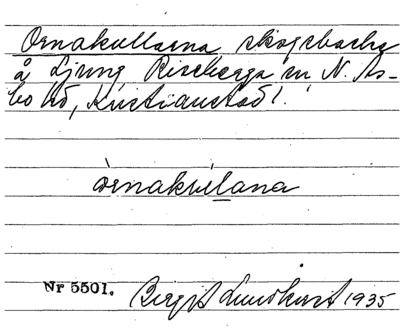 Ornakullarna skogsbacke
å Ljung Riseberga sn N. Ås-
bo hd, Kristianstad l.
òrnakúlana
Nr 5501. Birgit Lundkvist 1935